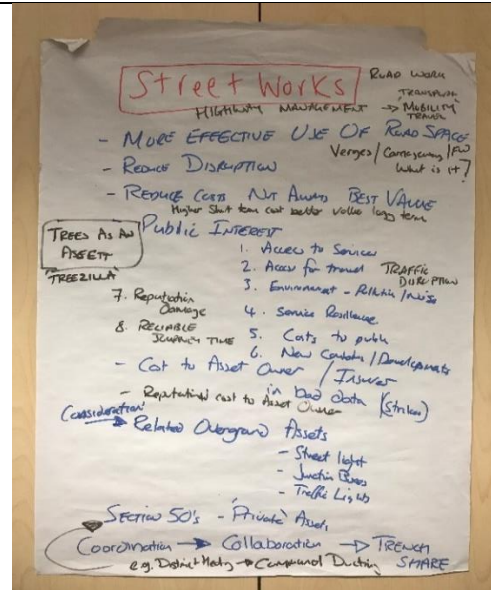 Street Works
ROAD WORK
TRANSPORT
HIGHWAY MANAGEMENT → MOBILITY
TRAVEL
- MORE EFFECTIVE USE OF ROAD SPACE
Verges / Carriageway / FW
What is it?
- REDUCE DISRUPTION
- REDUCE COSTS NOT ALWAYS BEST VALUE
Higher Short term cost better value long term
PUBLIC INTEREST
TREES AS AN
ASSET
TREEZILLA
1. Access to Services
2. Access for travel TRAFFIC DISRUPTION
3. Environment - Pollution / Noise
7. Reputation
Damage
4. Service Resilience
8. RELIABLE
JOURNEY TIME
5. Costs to public
6. New / Developments
- Cost to Asset Owner / Insurer
in bad data (Strikes)
- Reputational cost to Asset Owner
Consideration
→ Related Overground Assets
- Street light
- Junction Boxes
- Traffic Lights
SECTION 50's - 'Private' Assets
Coordination → Collaboration → TRENCH
SHARE
e.g. District Meeting → Communal Ducting